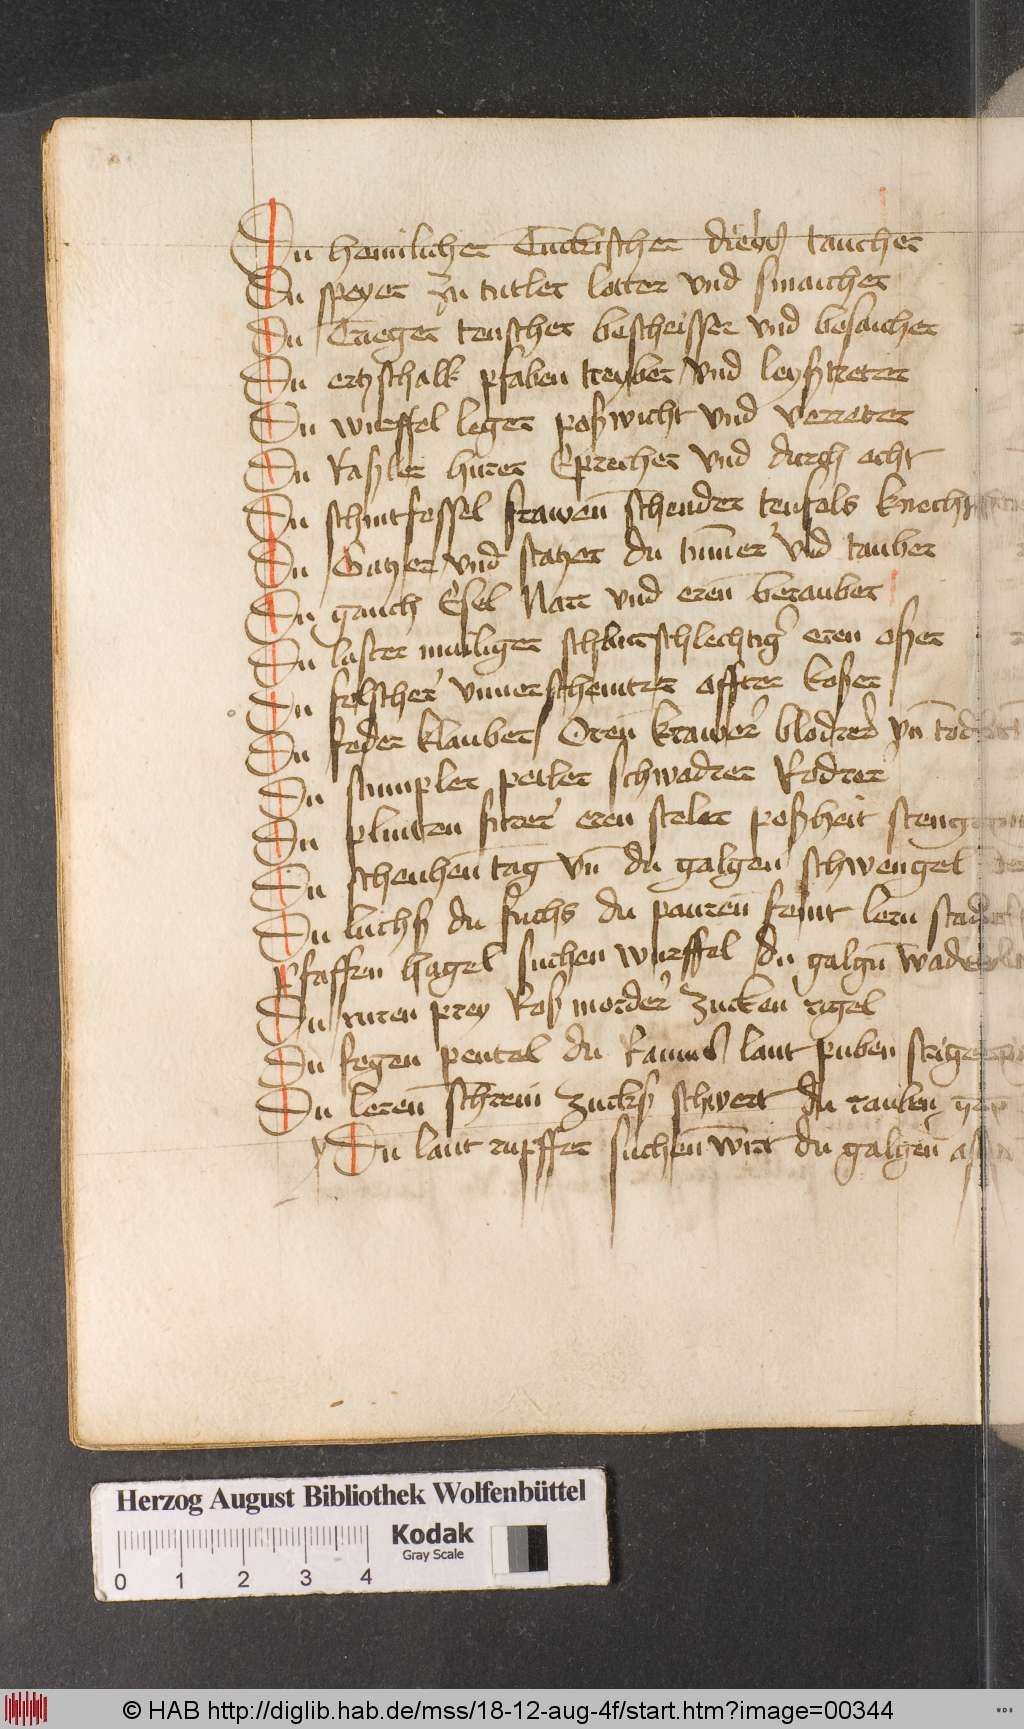 Du heimlicher Tuckischer diebs taucher
Du speyer zu tutler lotter vnd smaicher
Du Trieger teuscher bescheisser vnd besaicher
Du ertzschalk pfaben treyber vnd leysztreter
Du wurffel leger poszwicht vnd verreter
Du Raszler hurer Eprecher vnd durch echt
Du schintfessel frawen schender teufels knecht
Du Gatzer vnd statzer du tummer vnd tauber
Du gauch Esel Narr vnd eren berauber
Du laster mailiger eren
Du felscher vnuerschemter affter koser
Du feder klauber Oren krawer blodrer vn
Du stumpler peiler schwadrer Rodrer
Du eren steler poszheit
Du schenhen tag vn du galgen schwengel
Du luchsz du fuchs du pauren feint lern
Pfaffen hagel suchen wurffel du galgn
Du ruren prey Rosz morder zucken rigel
Du fegen peutel du Raums lant puben
Du leren schrein zucksz schwert du rauben
Du lant rupffer suchen wirt du galgen
Herzog August Bibliothek Wolfenbüttel
Kodak
Gray Scale
0 1 2 3 4
© HAB http://diglib.hab.de/mss/18-12-aug-4f/start.htm?image=00344